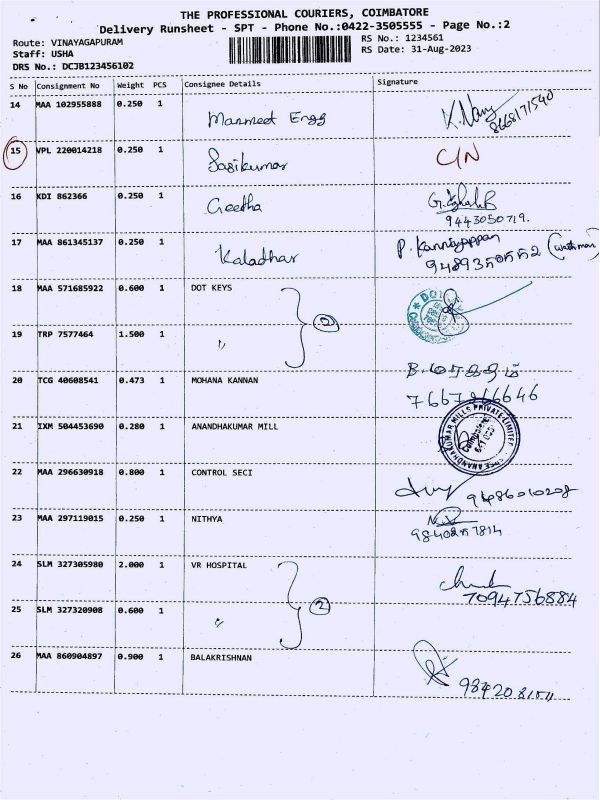 THE PROFESSIONAL COURIERS, COIMBATORE
Delivery Runsheet - SPT - Phone No.:0422-3505555 - Page No.:2
Route: VINAYAGAPURAM
RS No.: 1234561
Staff: USHA
RS Date: 31-Aug-2023
DRS No.: DCJB123456102
S No Consignment No Weight PCS Consignee Details Signature
14 MAA 102955888 0.250 1 Manmeet Engg K. 8668171540
15 VPL 220014218 0.250 1 Sasikumar C/N
16 KDI 862366 0.250 1 Geetha G.
9443050719.
17 MAA 861345137 0.250 1 Kaladhar P. Kanniyappan
(watchman)
18 MAA 571685922 0.600 1 DOT KEYS
2
19 TRP 7577464 1.500 1 "
20 TCG 40608541 0.473 1 MOHANA KANNAN B.
21 IXM 504453690 0.280 1 ANANDHAKUMAR MILL
22 MAA 296630918 0.800 1 CONTROL SECI
23 MAA 297119015 0.250 1 NITHYA
24 SLM 327305980 2.000 1 VR HOSPITAL
7094756884
2
25 SLM 327320908 0.600 1 "
26 MAA 860904897 0.900 1 BALAKRISHNAN